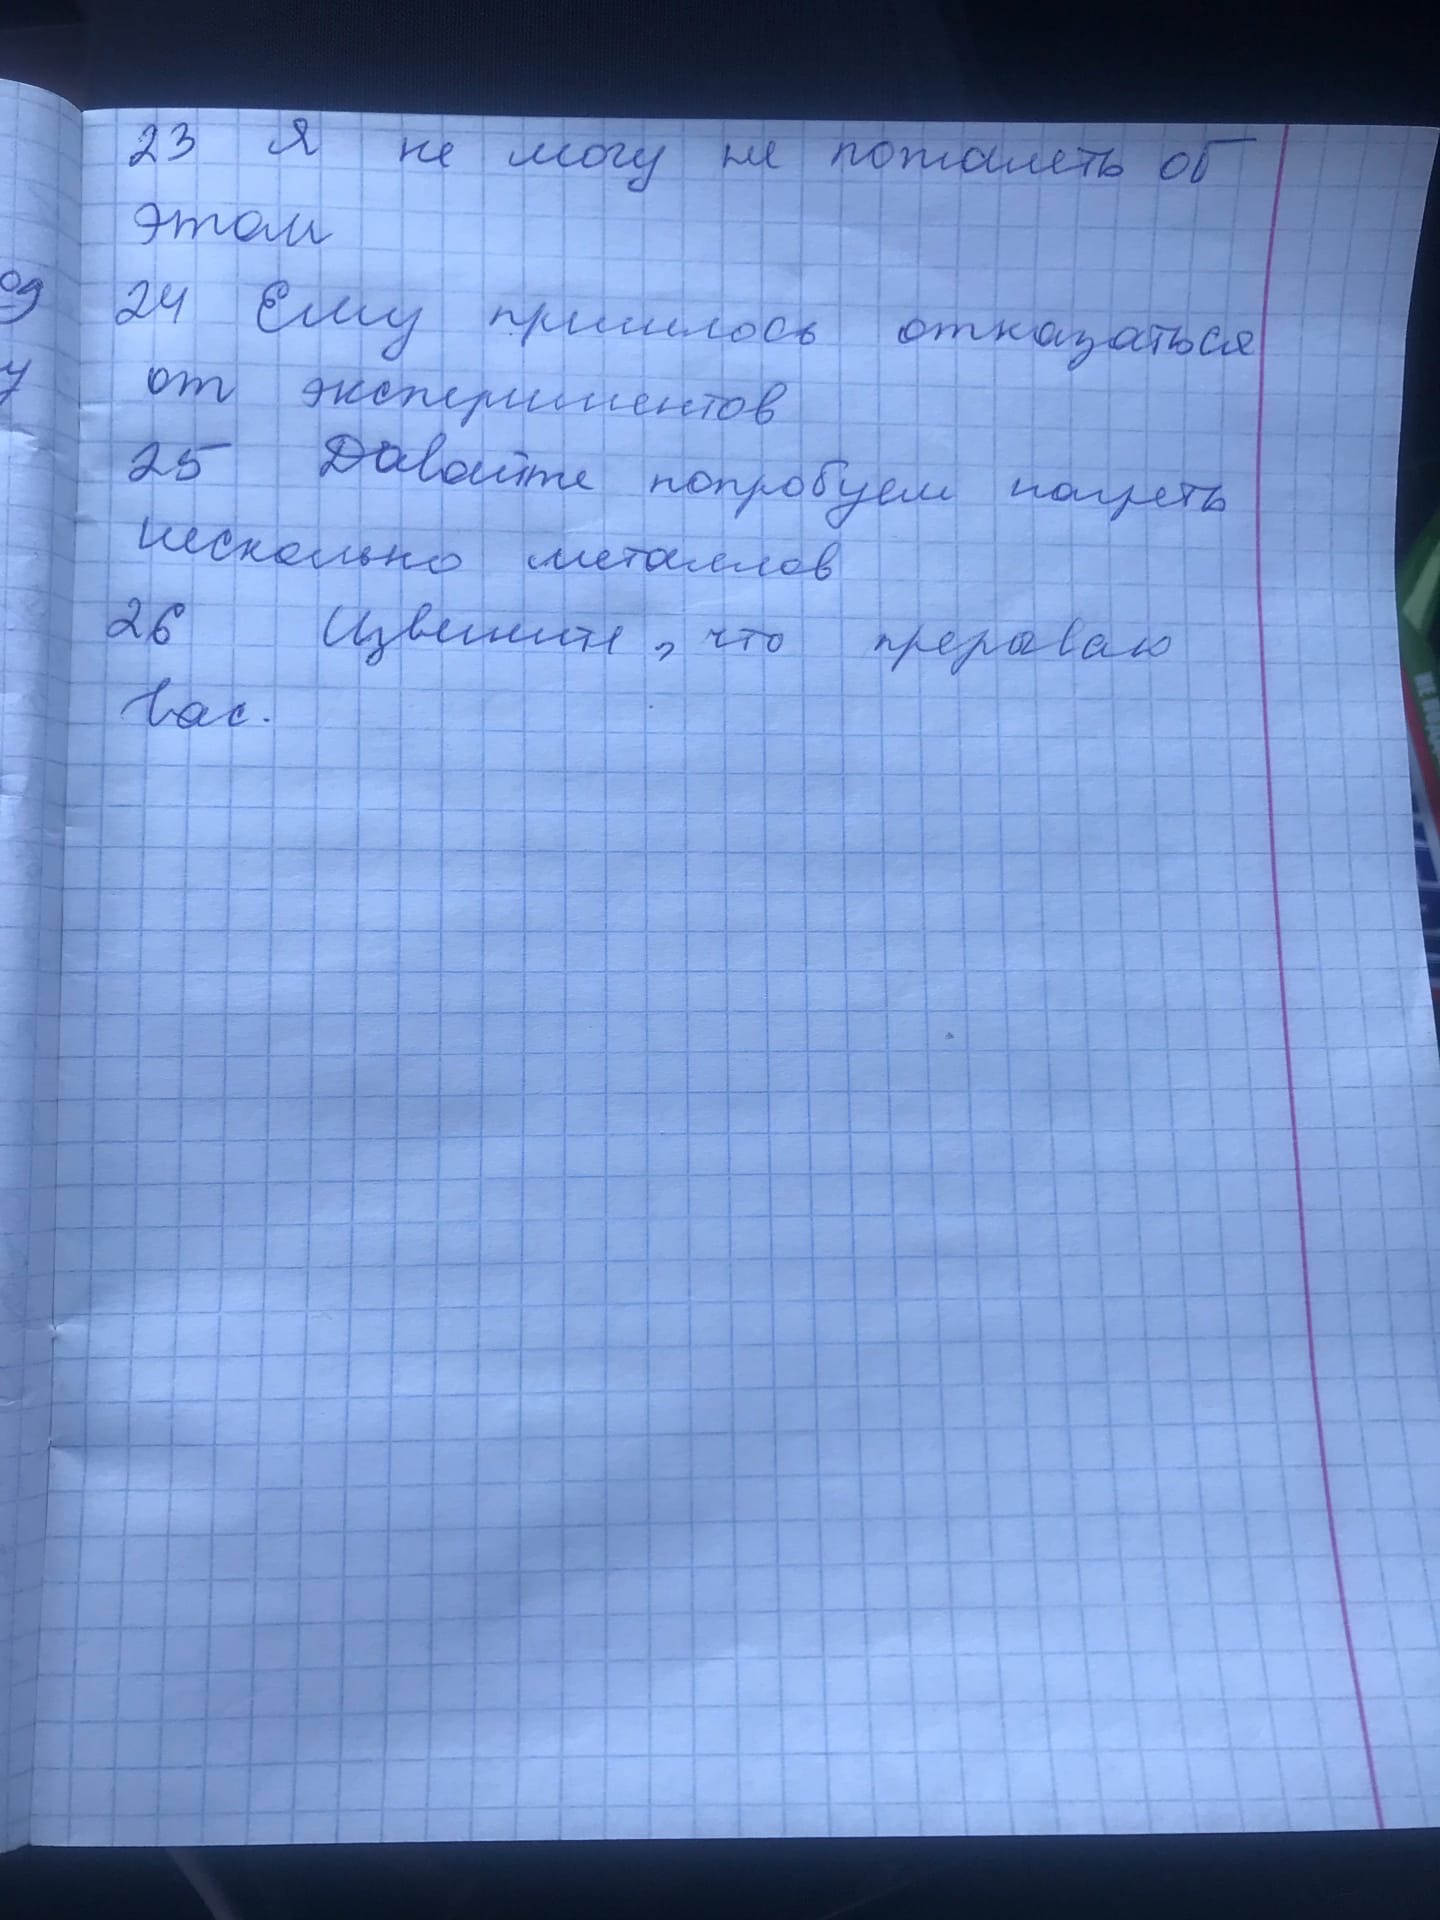 23 Я не могу не пожалеть об
этом
24 Ему пришлось отказаться
от экспериментов
25 Давайте попробуем нагреть
несколько металлов
26 Извените, что прерываю
вас.